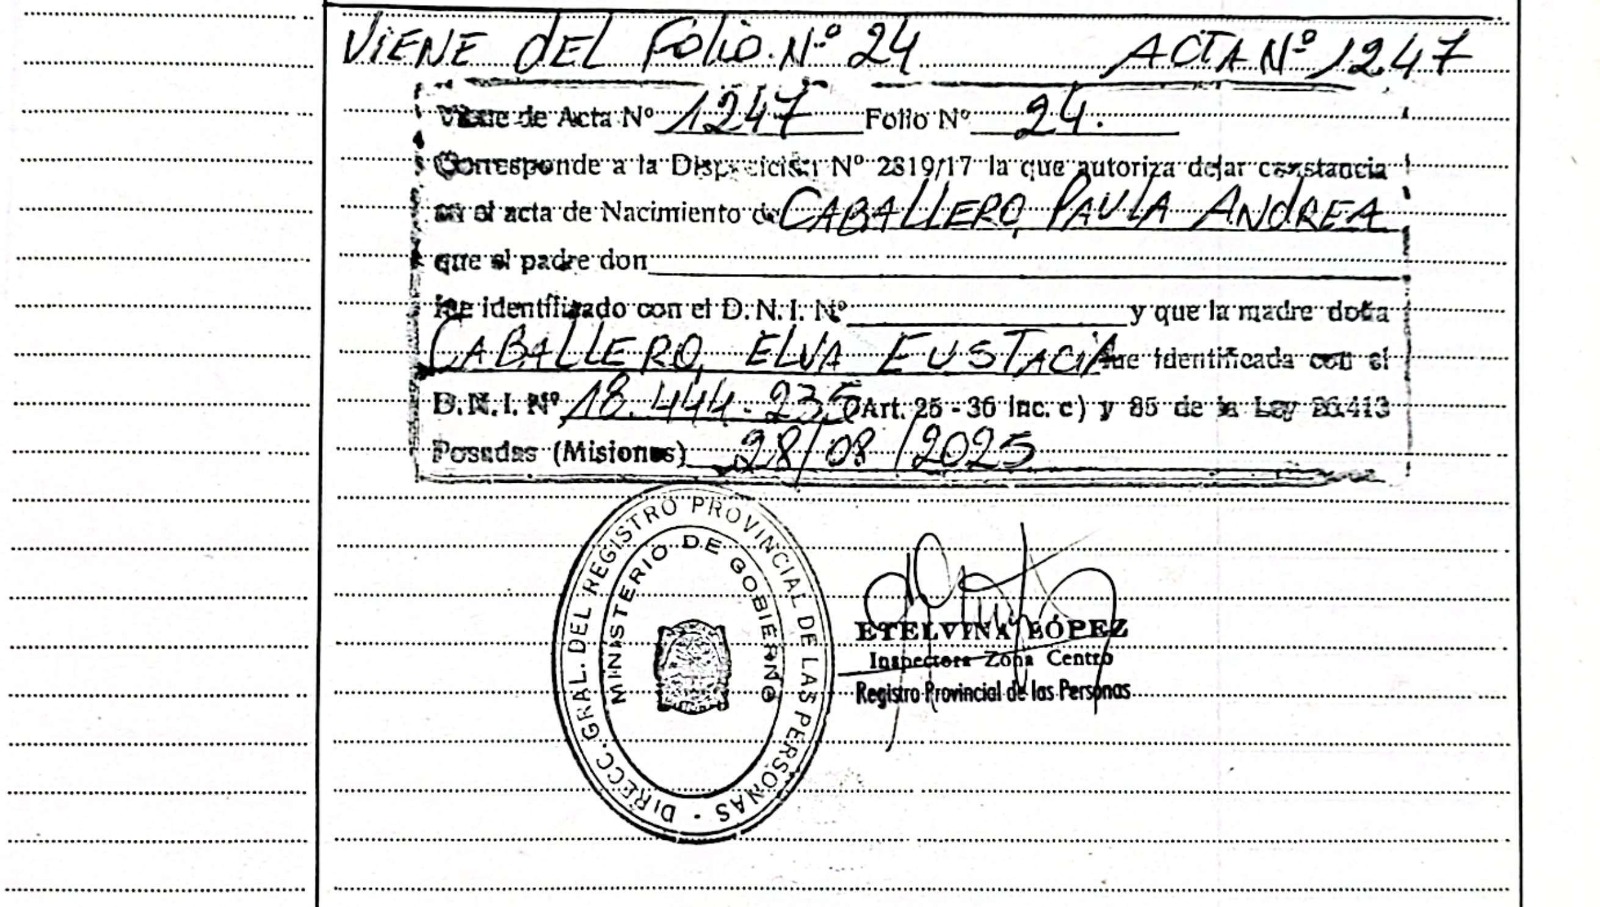 VIENE DEL FOLIO Nº 24 ACTA Nº 1247
Viene de Acta Nº 1247 Folio Nº 24.
Corresponde a la Disposición Nº 2819/17 la que autoriza dejar constancia
en el acta de Nacimiento de CABALLERO, PAULA ANDREA
que el padre don
fue identificado con el D.N.I. Nº y que la madre doña
CABALLERO, ELVA EUSTACIA fue identificada con el
D.N.I. Nº 18.444.235 (Art. 25 - 36 inc. c) y 85 de la Ley 26.413
Posadas (Misiones) 28/08/2025
DIRECC. GRAL. DEL REGISTRO PROVINCIAL DE LAS PERSONAS -
MINISTERIO DE GOBIERNO
ETELVINA LÓPEZ
Inspectora Zona Centro
Registro Provincial de las Personas